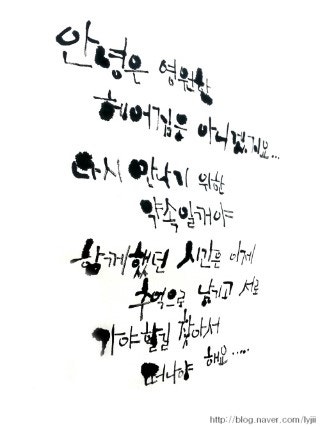 안녕은 영원한
헤어짐은 아니겠지요...
다시 만나기 위한
약속일거야
함께했던 시간은 이제
추억으로 남기고 서로
가야할길 찾아서
떠나야 해요.....
http://blog.naver.com/lyjii